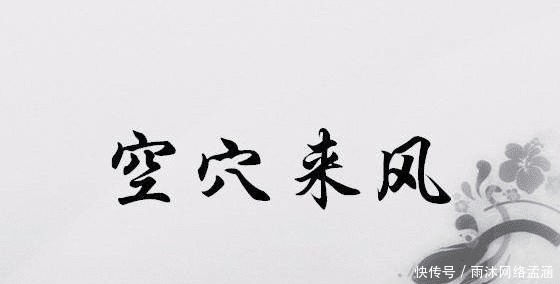 空穴来风
快传号／雨沐网络孟涵